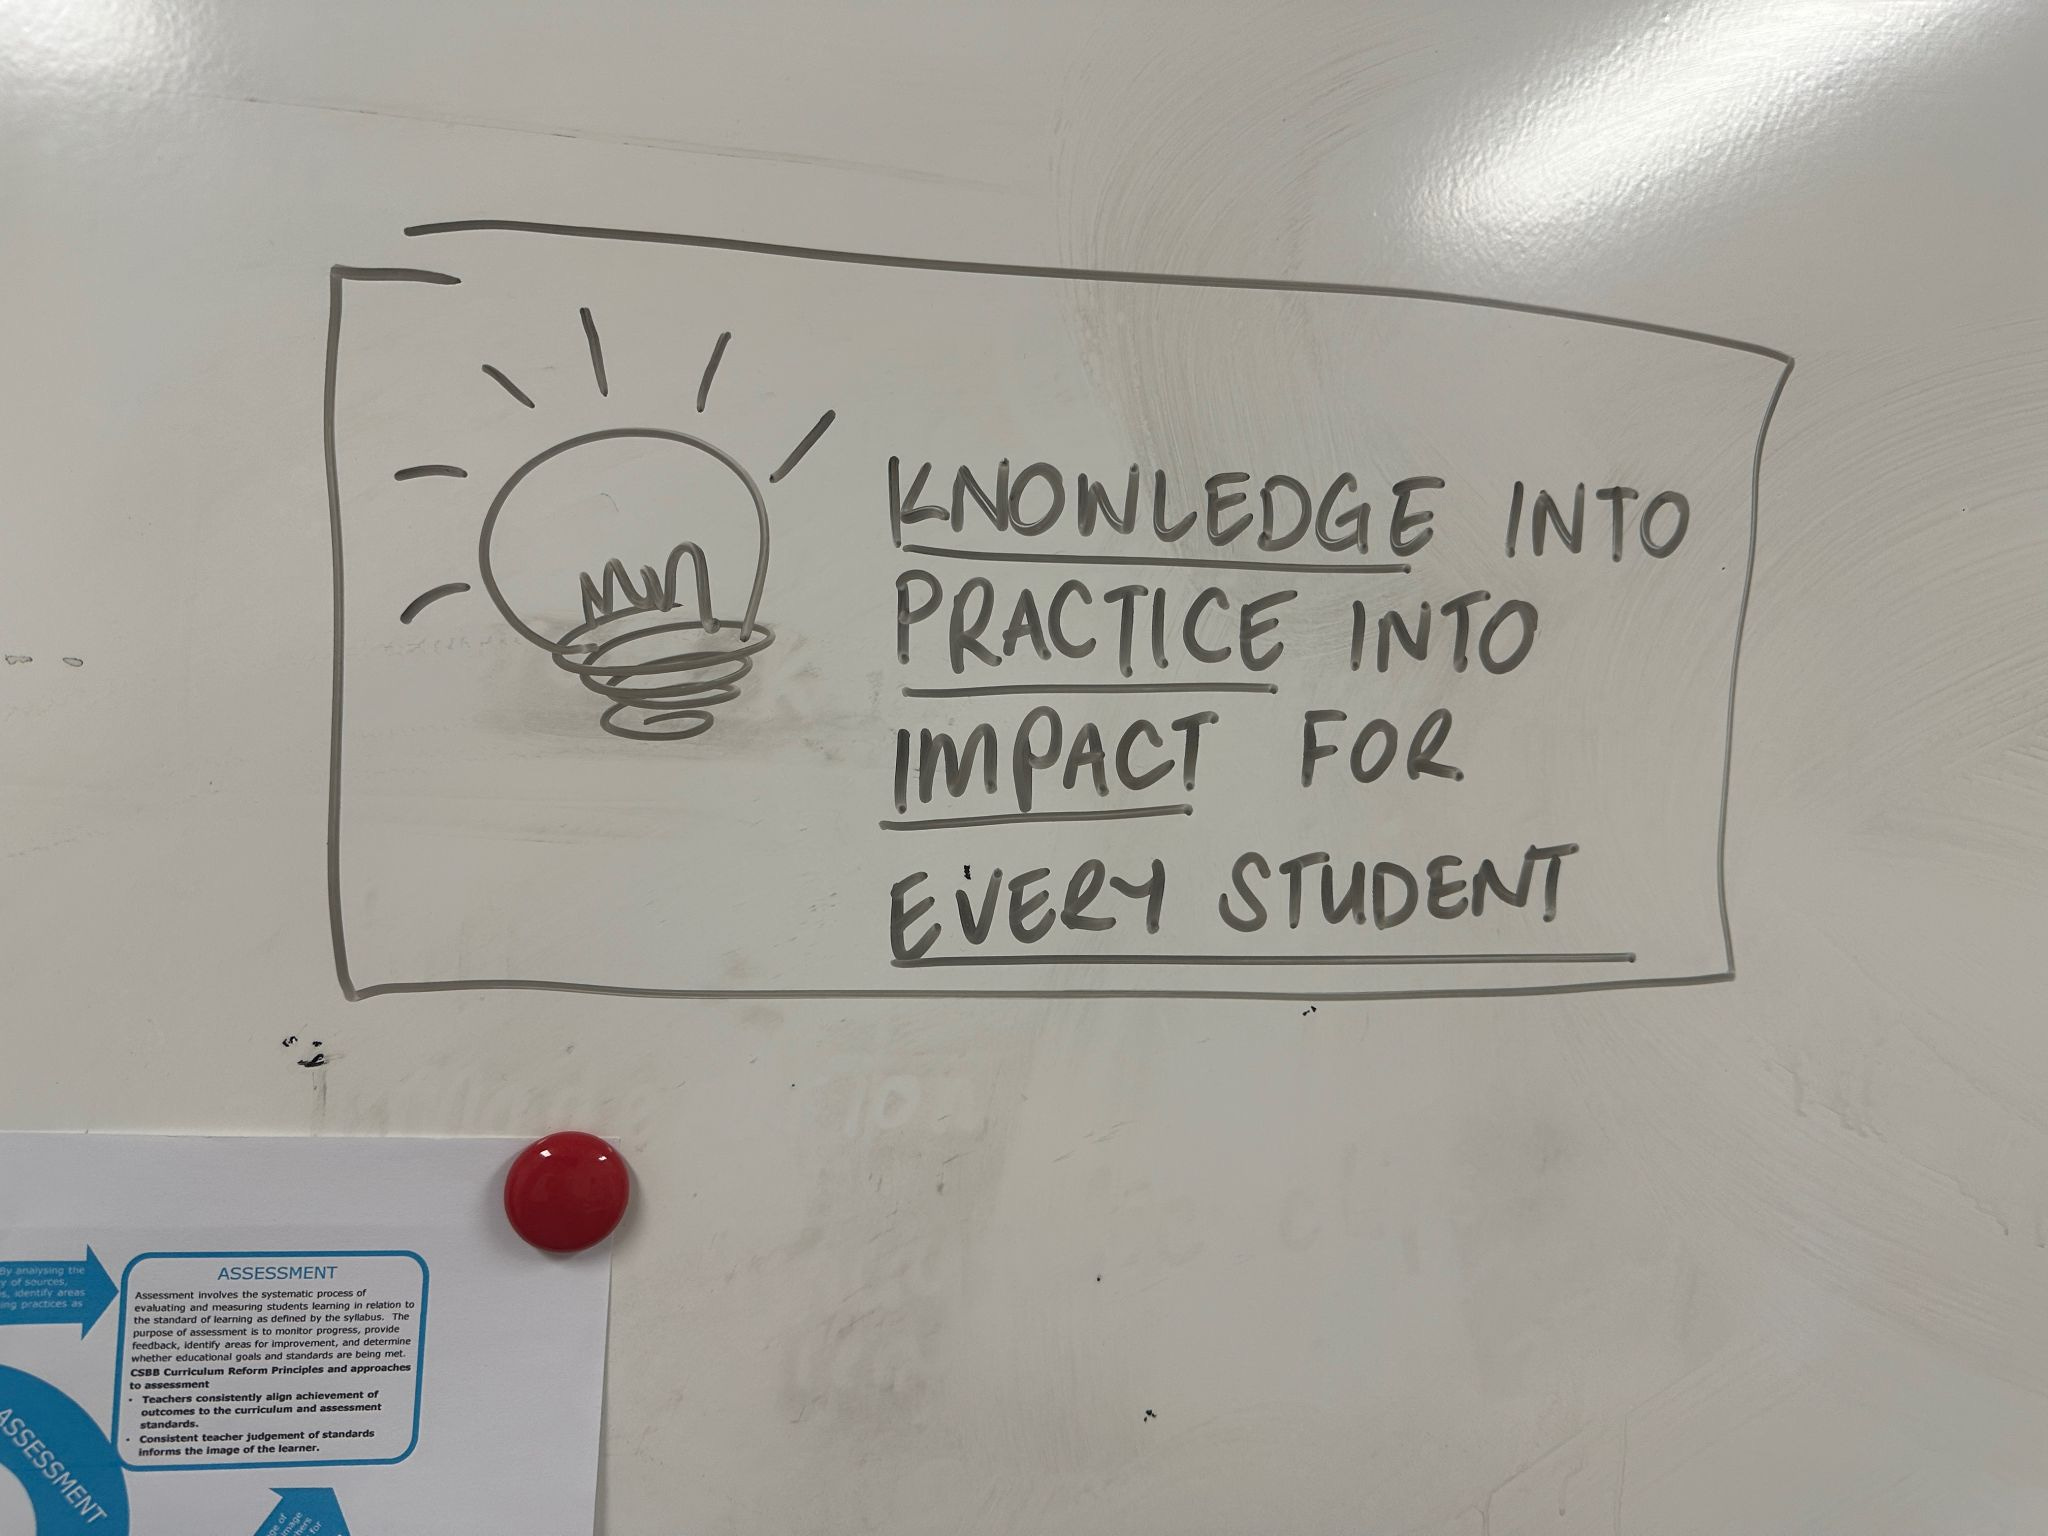 KNOWLEDGE INTO
PRACTICE INTO
IMPACT FOR
EVERY STUDENT
By analysing the
y of sources,
s, identify areas
ing practices as
ASSESSMENT
Assessment involves the systematic process of
evaluating and measuring students learning in relation to
the standard of learning as defined by the syllabus. The
purpose of assessment is to monitor progress, provide
feedback, identify areas for improvement, and determine
whether educational goals and standards are being met.
CSBB Curriculum Reform Principles and approaches
to assessment
• Teachers consistently align achievement of
outcomes to the curriculum and assessment
standards.
• Consistent teacher judgement of standards
informs the image of the learner.
ASSESSMENT
ge of
image
hers
for